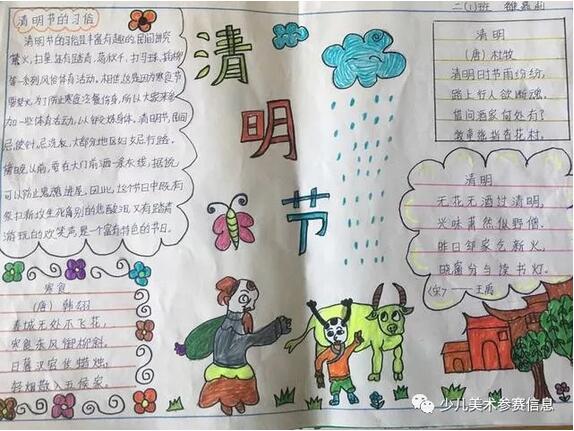 清明节的习俗
清明节的习俗是丰富有趣的,民间讲究
禁火,扫墓,还有踏青,荡秋千,打马球,插柳
等一系列风俗体育活动,相传这是因为寒食节
要禁火,为了防止寒食冷餐伤身,所以大家来参
加一些体育活动,以锻炼身体。清明节,民间
忌使针,忌洗衣,大部分地区妇女忌行路。
傍晚以前,要在大门前洒一条灰线,据说
可以防止鬼魂进宅。因此,这个节日中既有
祭扫新坟生死离别的悲酸泪,又有踏青
游玩的欢笑声,是一个富有特色的节日。
寒食
(唐)韩翃
春城无处不飞花,
寒食东风御柳斜。
日暮汉宫传蜡烛,
轻烟散入五侯家。
清
明
节
二(1)班
清明
(唐)杜牧
清明时节雨纷纷,
路上行人欲断魂。
借问酒家何处有?
牧童遥指杏花村。
清明
无花无酒过清明,
兴味萧然似野僧。
昨日邻家乞新火,
晓窗分与读书灯。
(宋)——王禹
少儿美术参赛信息